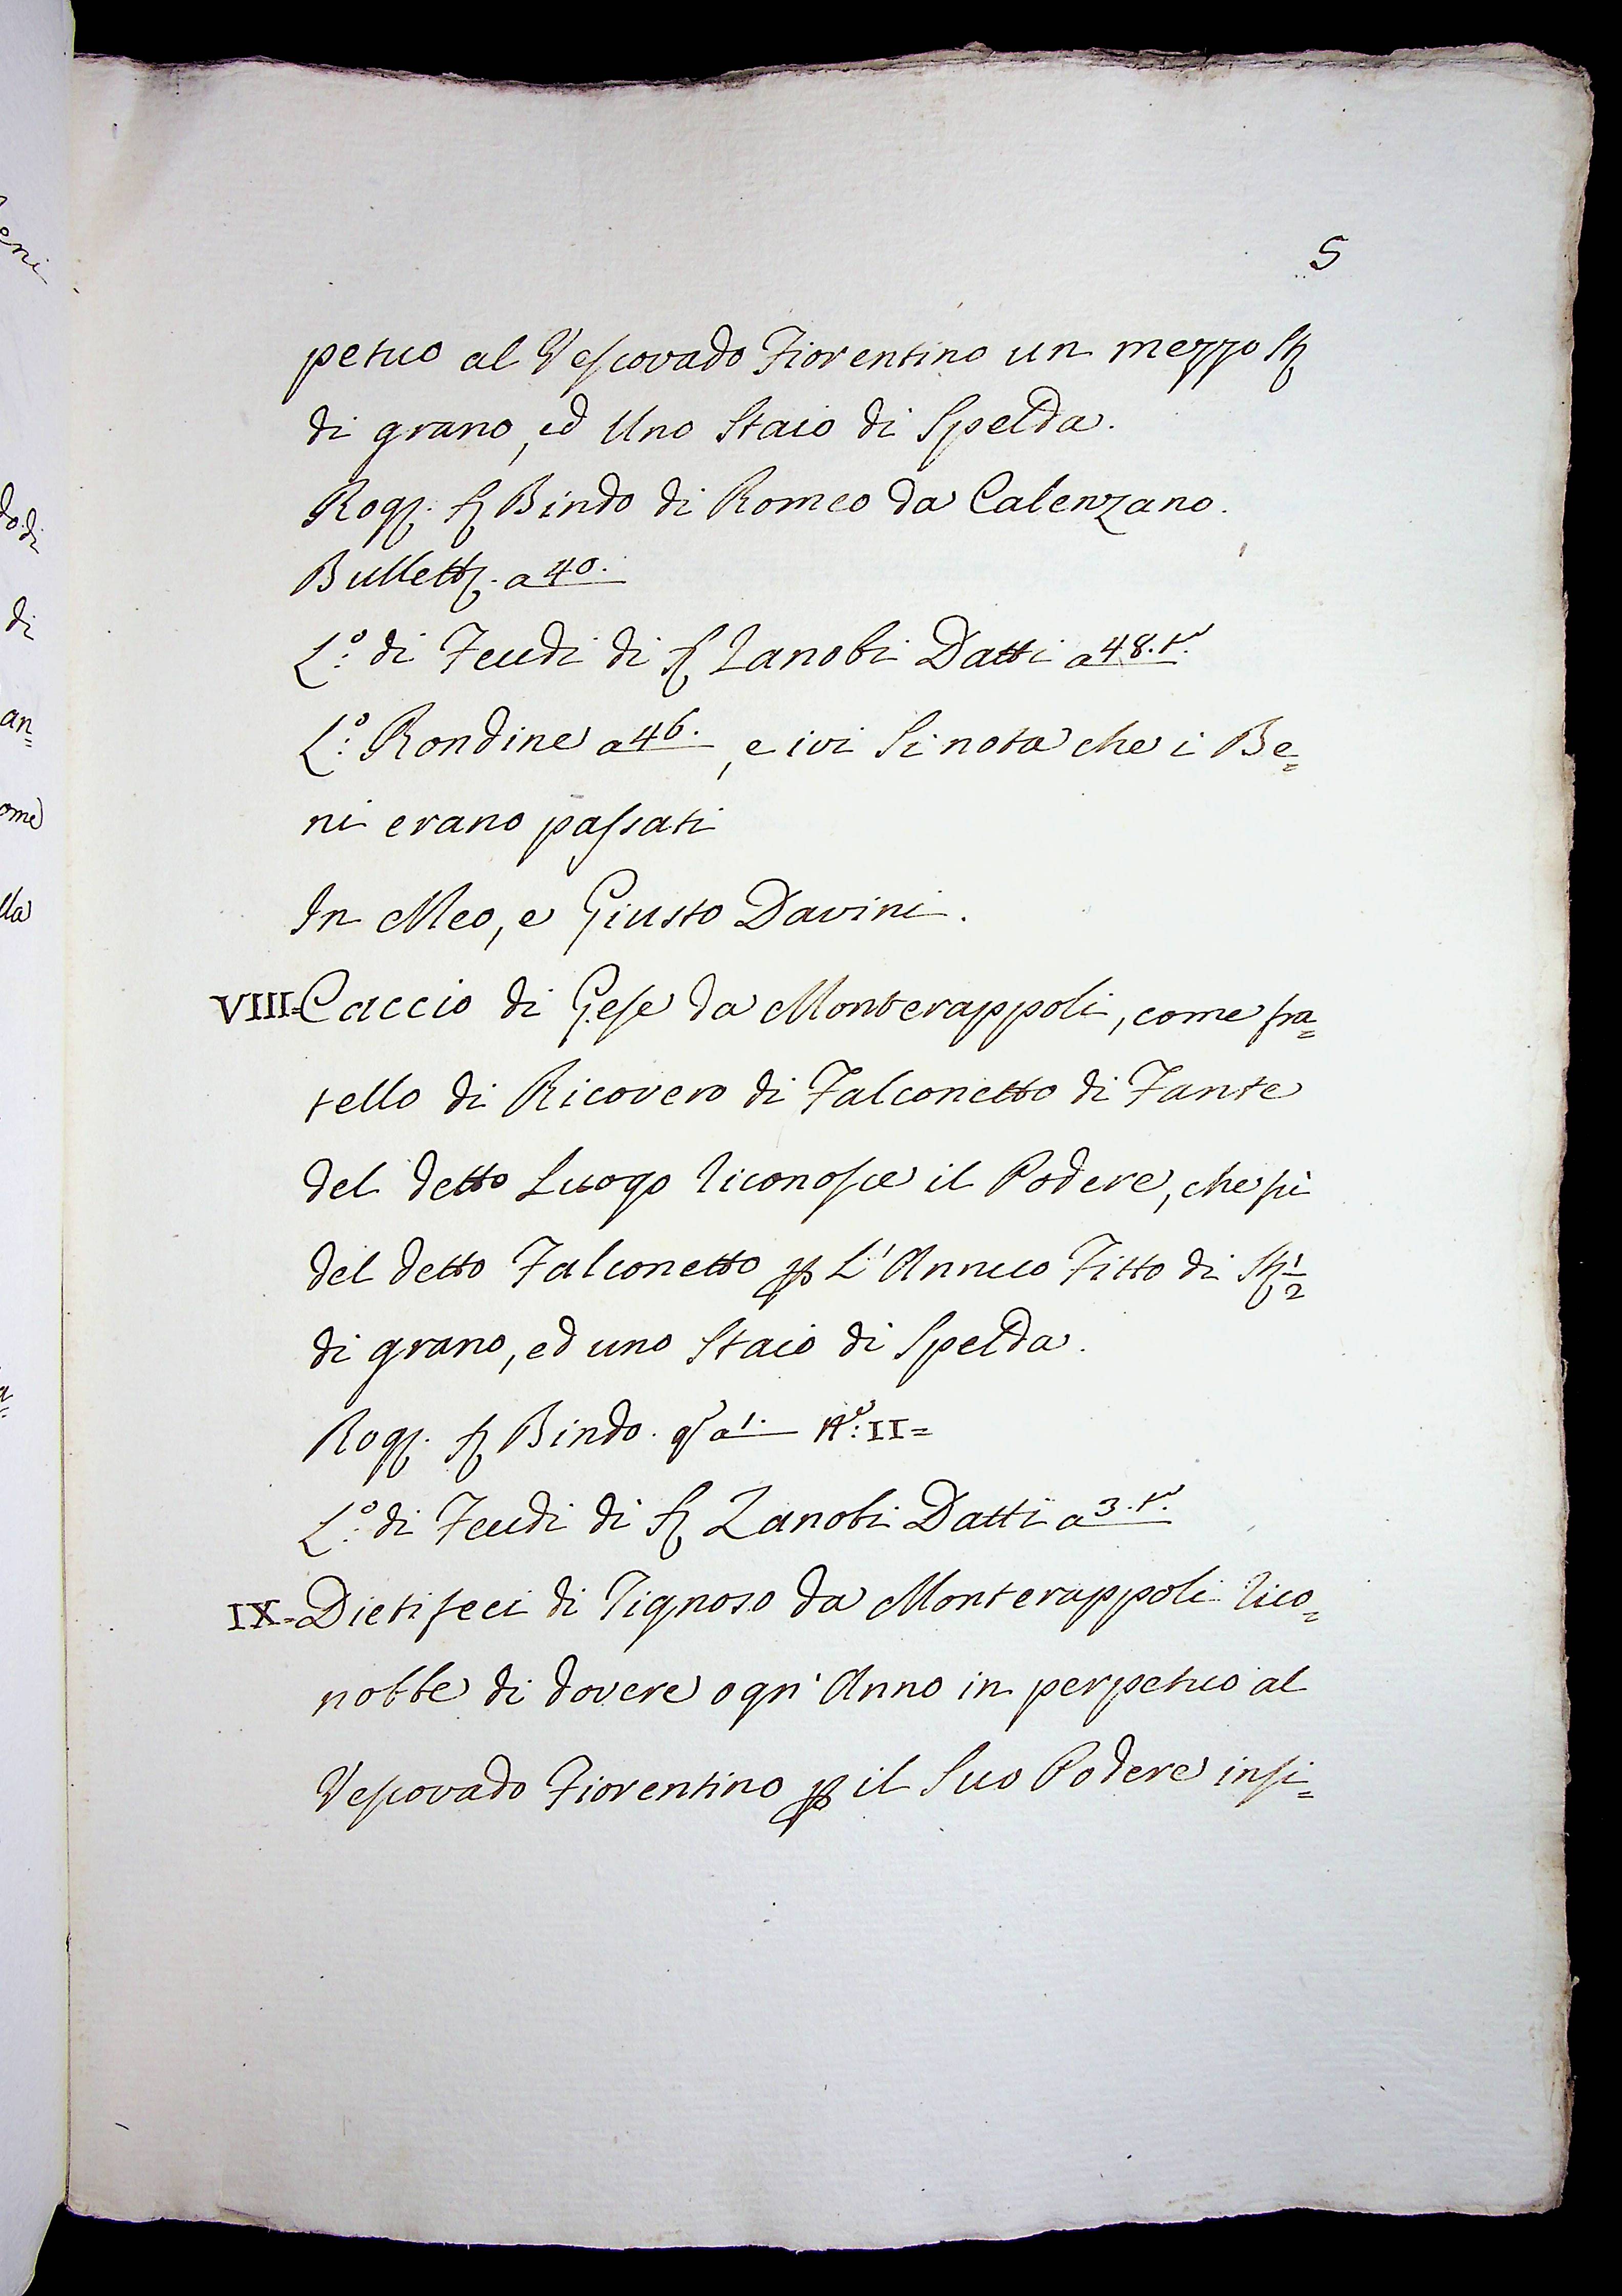 5
petuo al Vescovado Fiorentino un mezzo St
di grano, ed Uno Staio di Spelda.
Rog. S Bindo di Romeo da Calenzano.
Bullett. a 40.
L.o di Feudi di S Zanobi Datti a 48. t.o
L.o Rondine a 46. , e ivi Si nota che i Be=
ni erano passati
In Meo, e Giusto Davini.
VIII= Caccio di Gese da Monterappoli, come fra=
tello di Ricovero di Falconetto di Fante
del detto Luogo riconosce il Podere, che fù
del detto Falconetto p L'Annuo Fitto di St 1/2
di grano, ed uno Staio di Spelda.
Rog. S Bindo. a 1. N.o: II=
L.o di Feudi di S Zanobi Datti a 3. t.o
IX= Dietifeci di Tignoso da Monterappoli rico=
nobbe di dovere ogn'Anno in perpetuo al
Vescovado Fiorentino p il Suo Podere insi=
eni
do. di
di
an=
ome
lla
a=